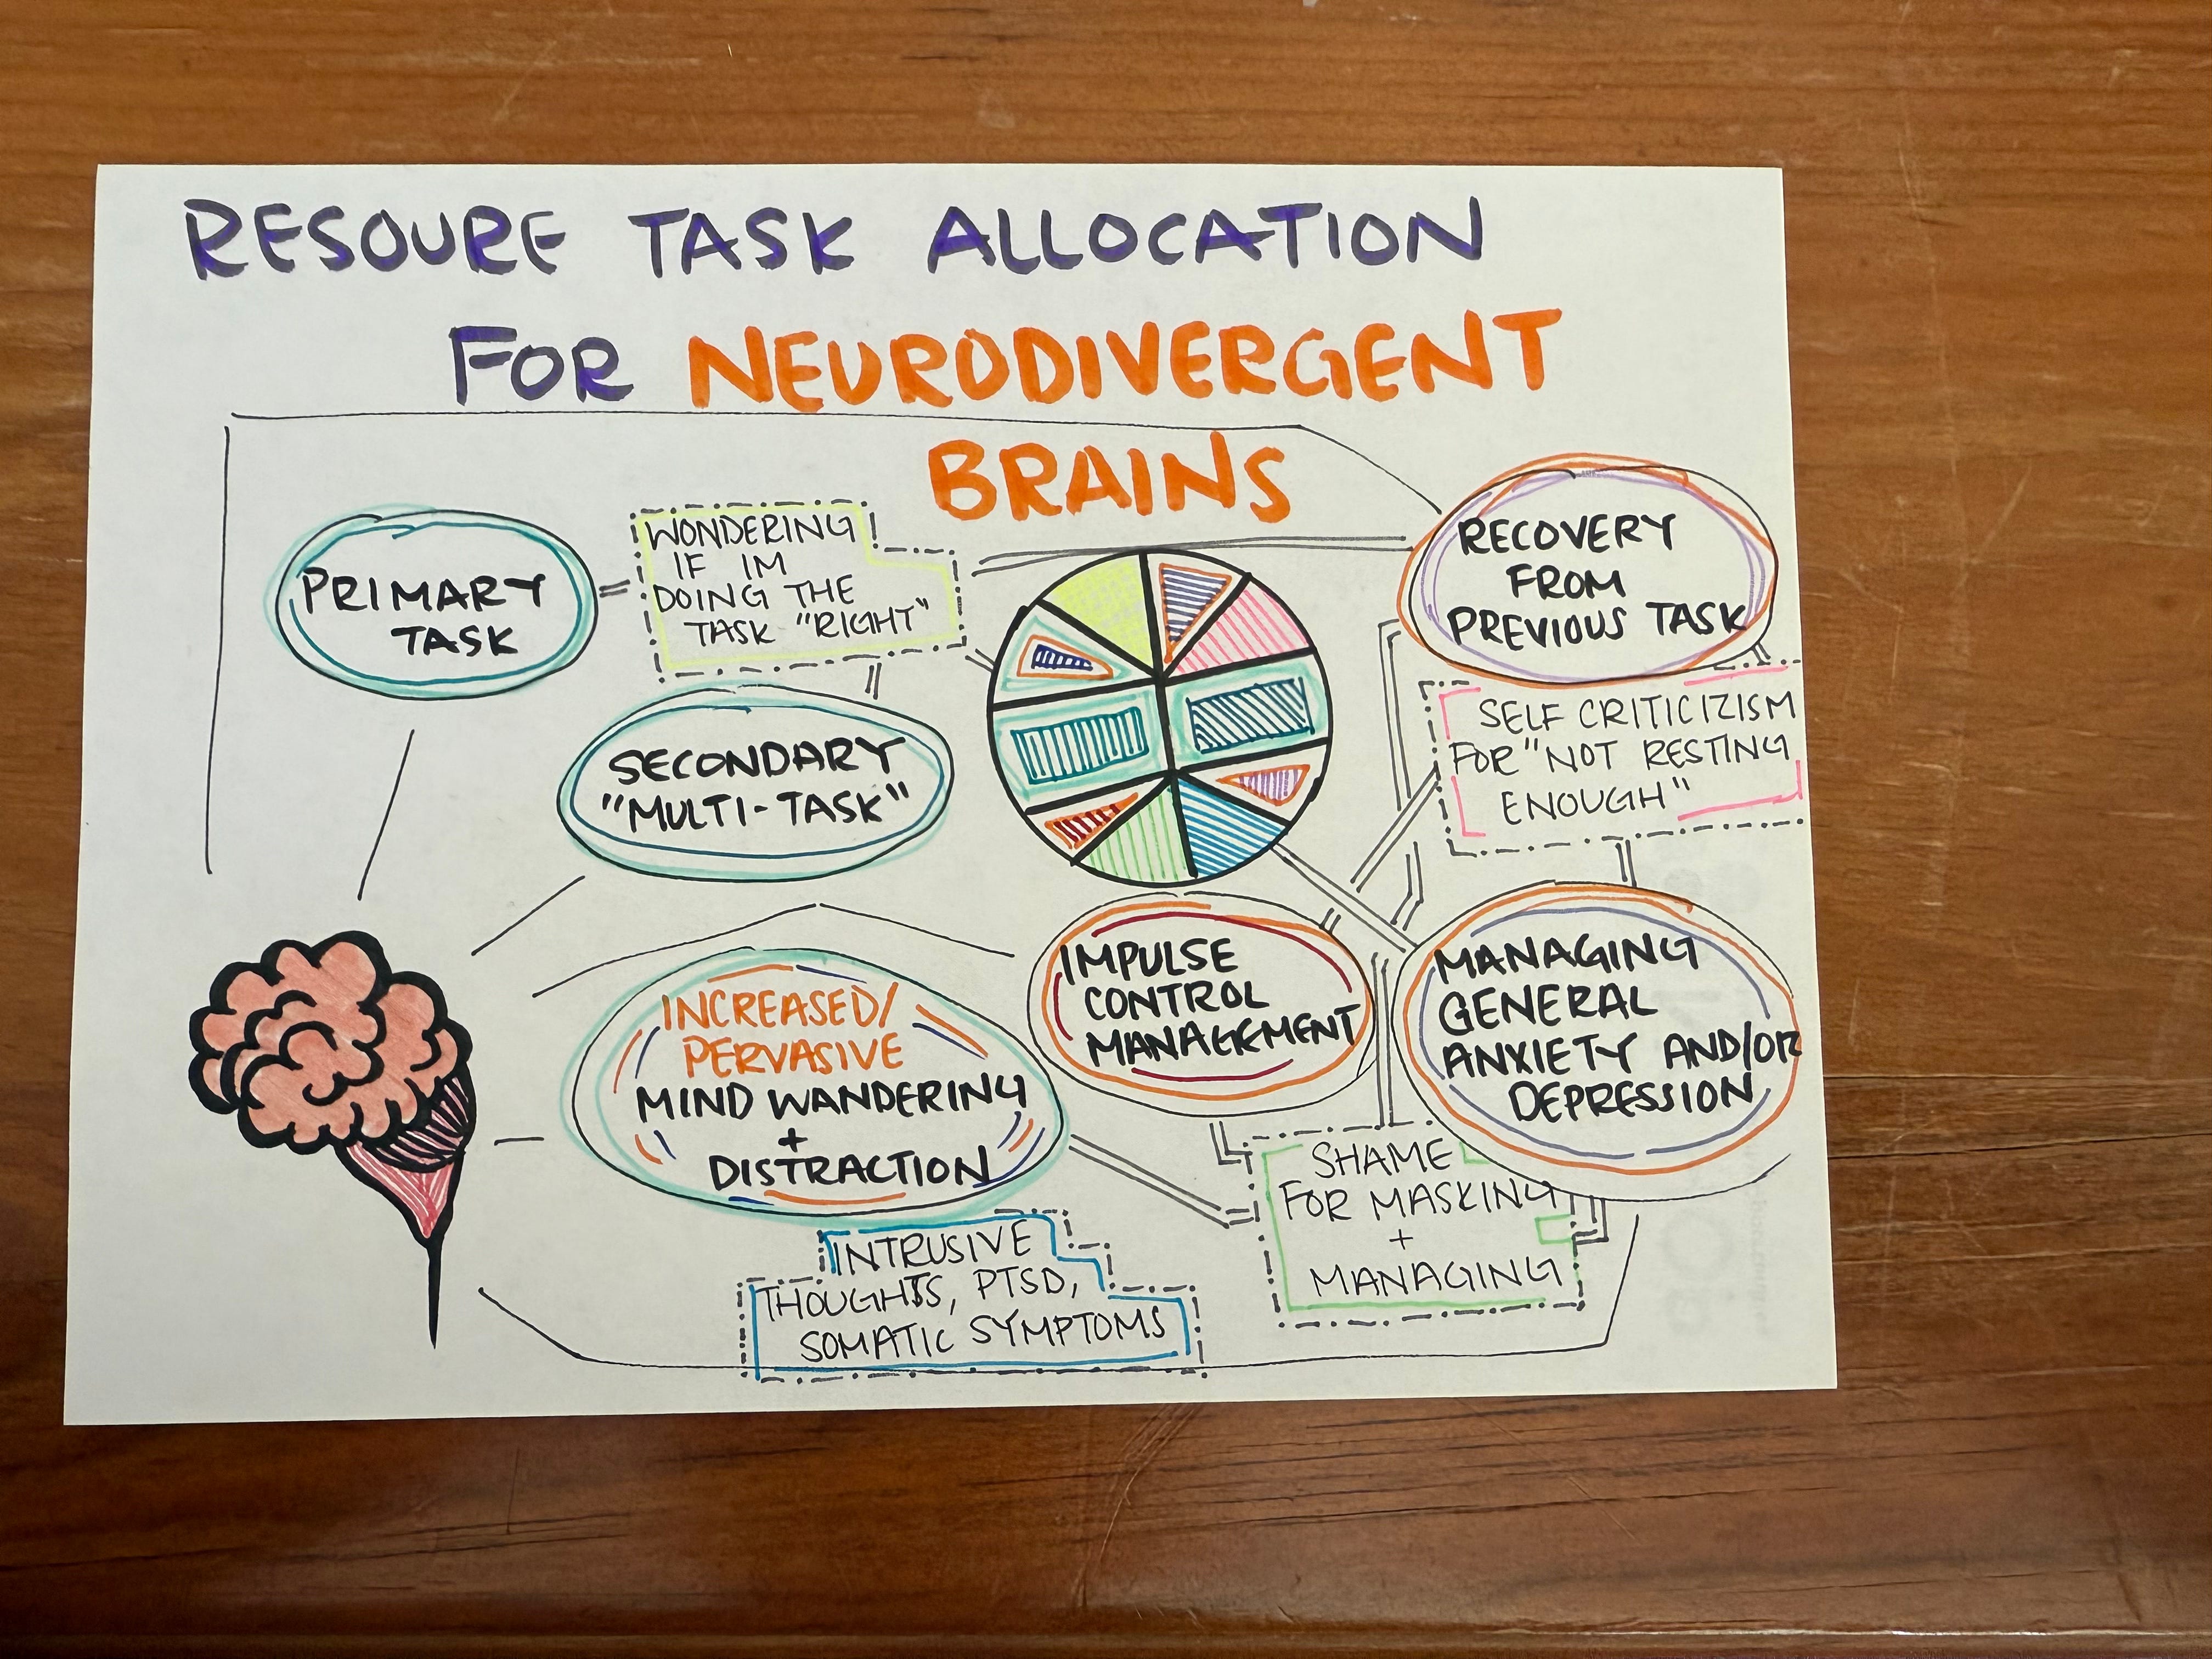 RESOURE TASK ALLOCATION
FOR NEURODIVERGENT
BRAINS
PRIMARY
TASK
WONDERING
IF IM
DOING THE
TASK "RIGHT"
RECOVERY
FROM
PREVIOUS TASK
SECONDARY
"MULTI-TASK"
SELF CRITICIZISM
FOR "NOT RESTING
ENOUGH"
INCREASED/
PERVASIVE
MIND WANDERING
+
DISTRACTION
IMPULSE
CONTROL
MANAGEMENT
MANAGING
GENERAL
ANXIETY AND/OR
DEPRESSION
INTRUSIVE
THOUGHTS, PTSD,
SOMATIC SYMPTOMS
SHAME
FOR MASKING
+
MANAGING